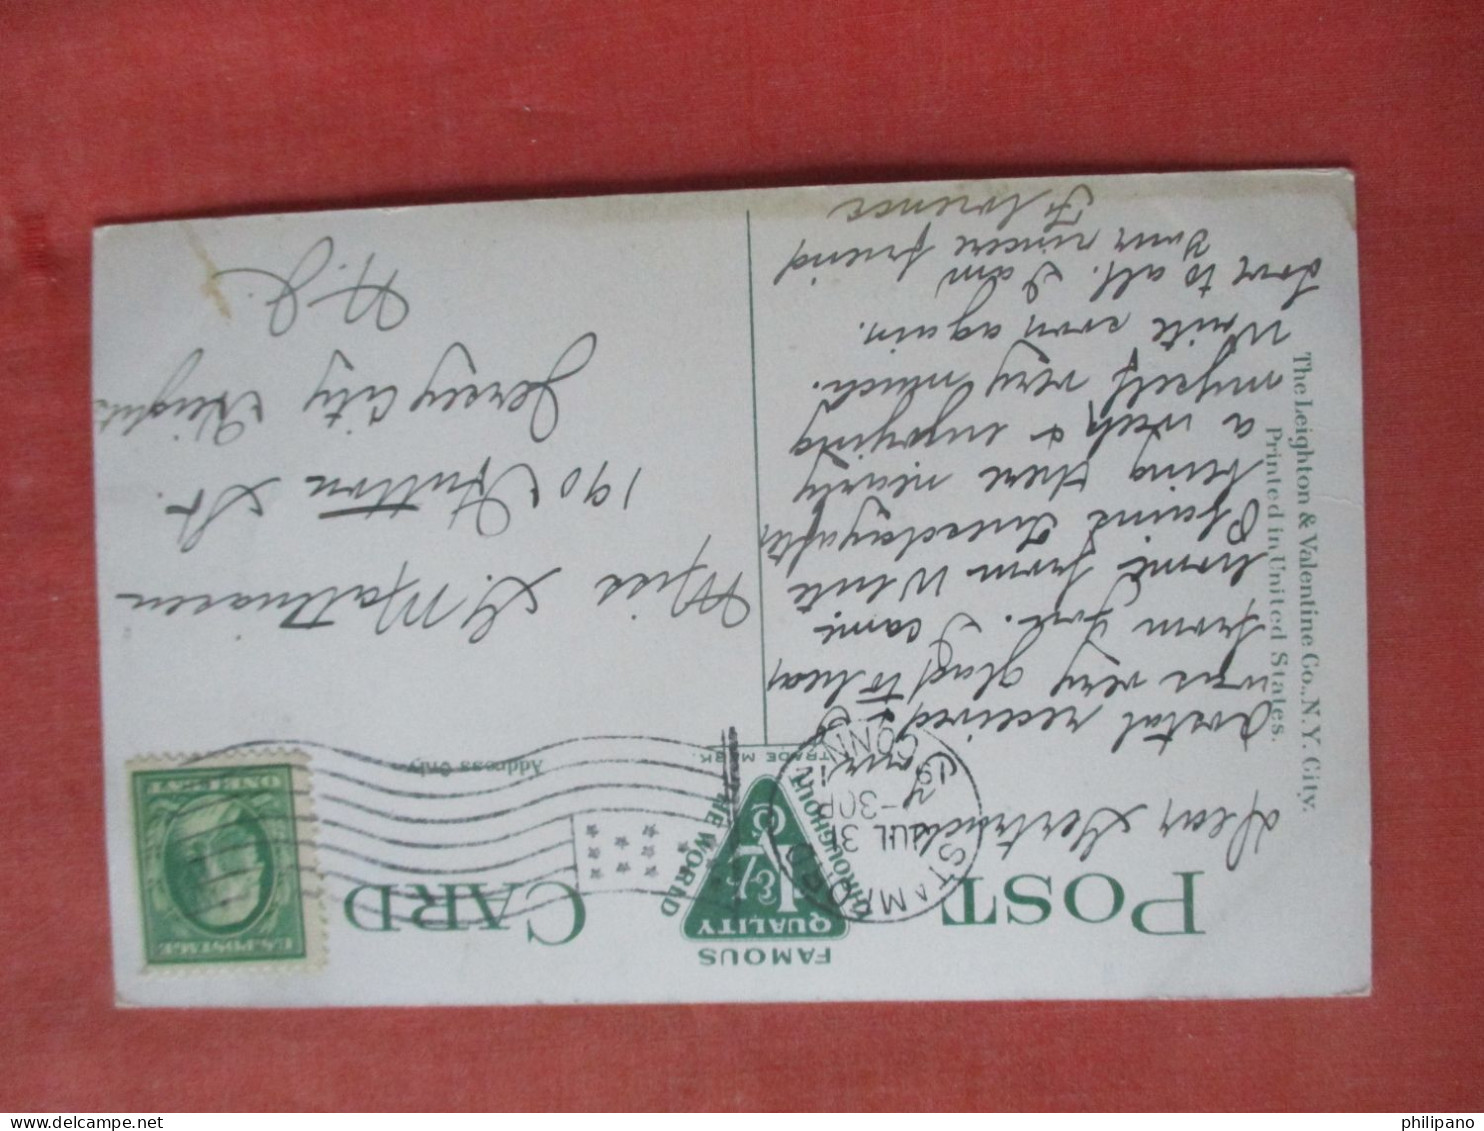 POST CARD
FAMOUS
QUALITY
THROUGHOUT THE WORLD
TRADE MARK.
Address Only
The Leighton & Valentine Co., N.Y. City.
Printed in United States.
STAMFORD
JUL 3
-30P
19
CONN.
U.S. POSTAGE
ONE CENT
Dear Gertrude
Postal received &
was very glad to hear
from you. I came
home from White
Plains Tuesday after
being there nearly
a week & enjoying
myself very much.
Write soon again.
Love to all. I am
Your sincere friend
Florence
Miss G. Mathiasen
190 Hutton St.
Jersey City Heights
N.J.
philipano